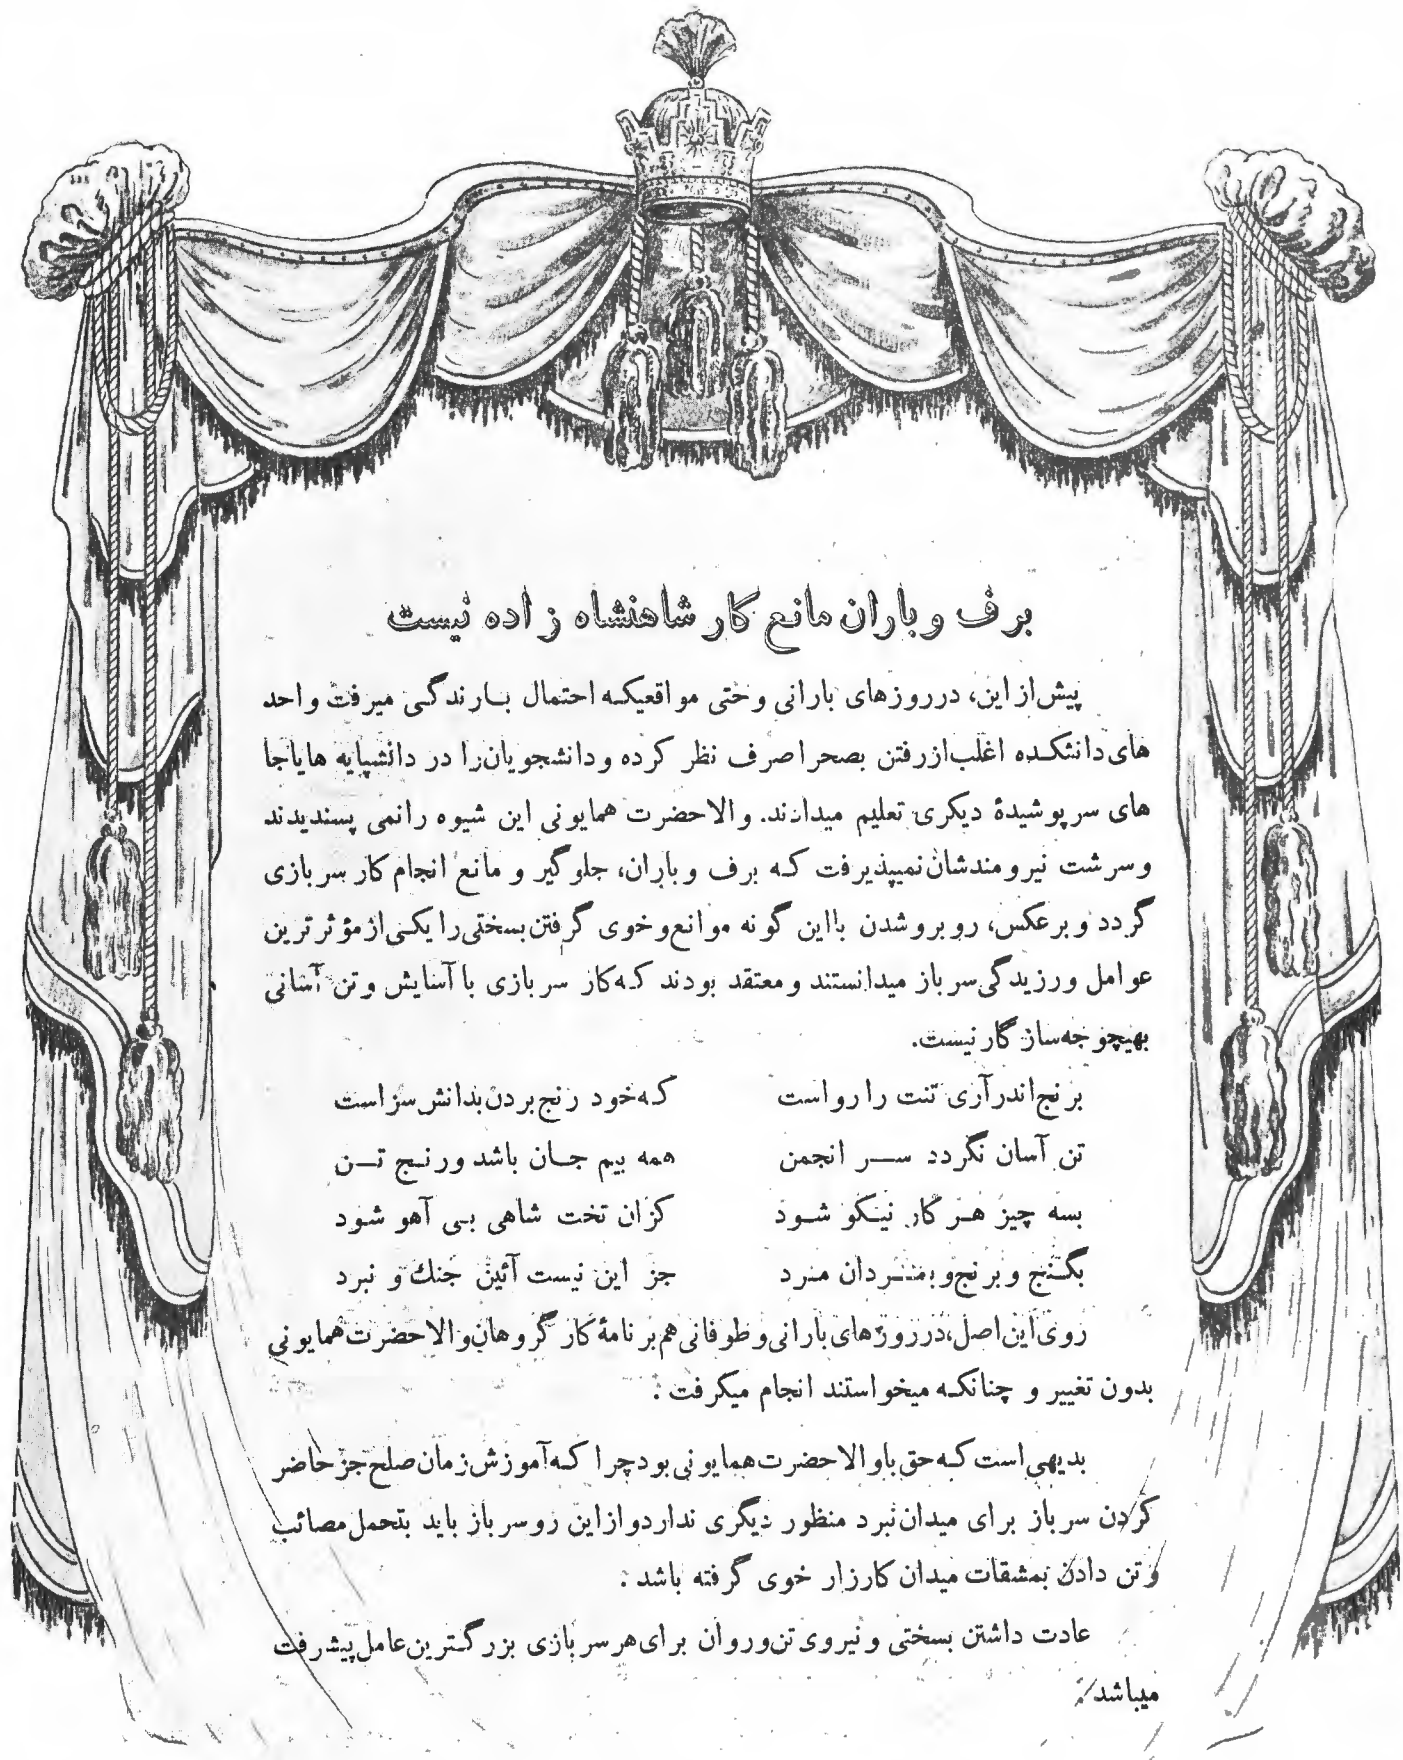 برف و باران مانع کار شاهنشاه زاده نیست
پیش از این، در روزهای بارانی و حتی مواقعیکه احتمال بارندگی میرفت واحد
های دانشکده اغلب از رفتن بصحرا صرف نظر کرده و دانشجویان را در دانشپایه ها یا جا
های سرپوشیدۀ دیگری تعلیم میدادند. والاحضرت همایونی این شیوه را نمی پسندیدند
و سرشت نیرومندشان نمیپذیرفت که برف و باران، جلوگیر و مانع انجام کار سربازی
گردد و برعکس، روبرو شدن با این گونه موانع و خوی گرفتن بسختی را یکی از مؤثرترین
عوامل ورزیدگی سرباز میدانستند و معتقد بودند که کار سربازی با آسایش و تن آسانی
بهیچوجه سازگار نیست.
برنج اندر آری تنت را رواست که خود رنج بردن بدانش سزاست
تن آسان نگردد سر انجمن همه بیم جان باشد و رنج تن
بسه چیز هر کار نیکو شود کزان تخت شاهی بی آهو شود
بگنج و برنج و بمردان مرد جز این نیست آئین جنك و نبرد
روی این اصل، در روزهای بارانی و طوفانی هم برنامۀ کار گروهان والاحضرت همایونی
بدون تغییر و چنانکه میخواستند انجام میگرفت.
بدیهی است که حق با والاحضرت همایونی بود چرا که آموزش زمان صلح جز حاضر
کردن سرباز برای میدان نبرد منظور دیگری ندارد و از این رو سرباز باید بتحمل مصائب
و تن دادن بمشقات میدان کارزار خوی گرفته باشد.
عادت داشتن بسختی و نیروی تن و روان برای هر سربازی بزرگترین عامل پیشرفت
میباشد.